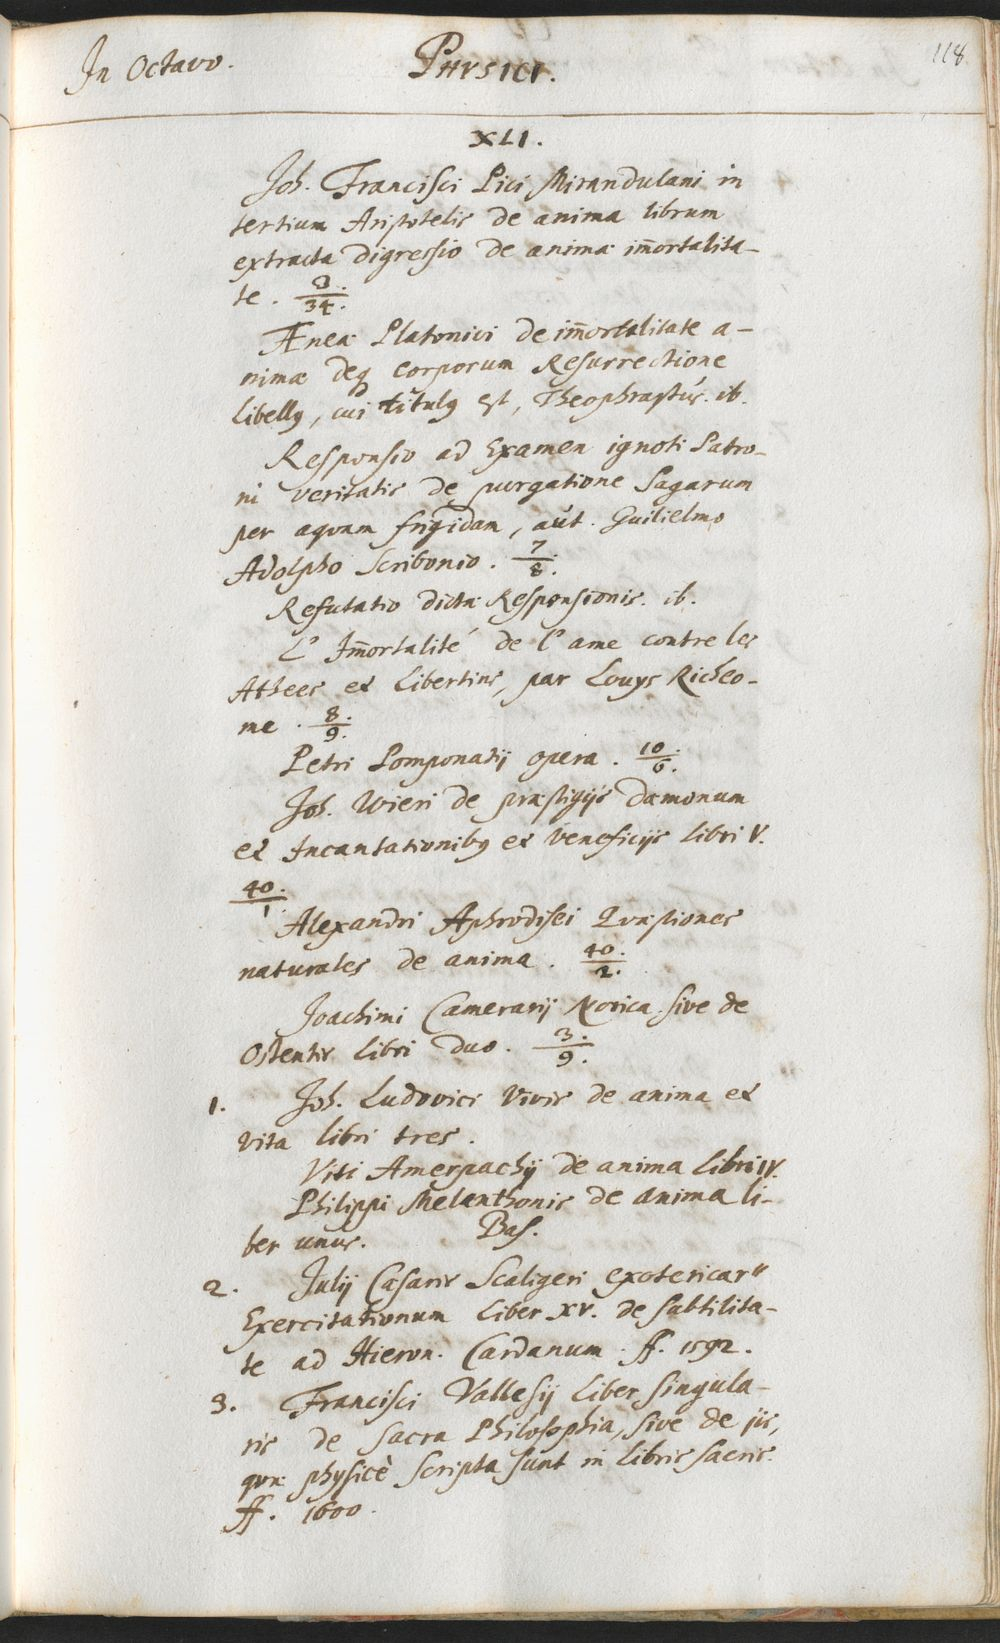 In Octavo.
Physici.
118
XLI.
Joh. Francisci Pici Mirandulani in
tertium Aristotelis de anima librum
extracta digressio de animæ im̄ortalita-
te. 3./34.
Æneæ Platonici de im̄ortalitate a-
nimæ deq corporum Resurrectione
libellꝰ, cui titulꝰ est, Theophrastus. ib.
Responsio ad Examen ignoti Patro-
ni veritatis de purgatione Sagarum
per aquam frigidam, aut. Guilielmo
Adolpho Scribonio. 7/8.
Refutatio dictæ Responsionis. ib.
L' Im̄ortalité de l' ame contre les
Athees et Libertins, par Louys Richeo-
me. 8./9.
Petri Pomponatij opera. 10./6.
Joh. Wieri de præstigijs dæmonum
et Incantationibꝰ et Veneficijs Libri V.
40./1.
Alexandri Aphrodisei Quæstiones
naturales de anima. 40./2.
Joachimi Camerarij Norica sive de
Ostentis Libri duo. 3./9.
1. Joh. Ludovici Vivis de anima et
vita libri tres.
Viti Amerpachij de anima Libri IV.
Philippi Melanthonis de anima li-
ber unus. Bas.
2. Julij Cæsaris Scaligeri exotericar"
Exercitationum Liber XV. de Subtilita-
te ad Hieron. Cardanum. ff. 1592.
3. Francisci Vallesij Liber Singula-
ris de Sacra Philosophia, sive de jis,
quæ physicè Scripta sunt in libris sacris.
ff. 1600.